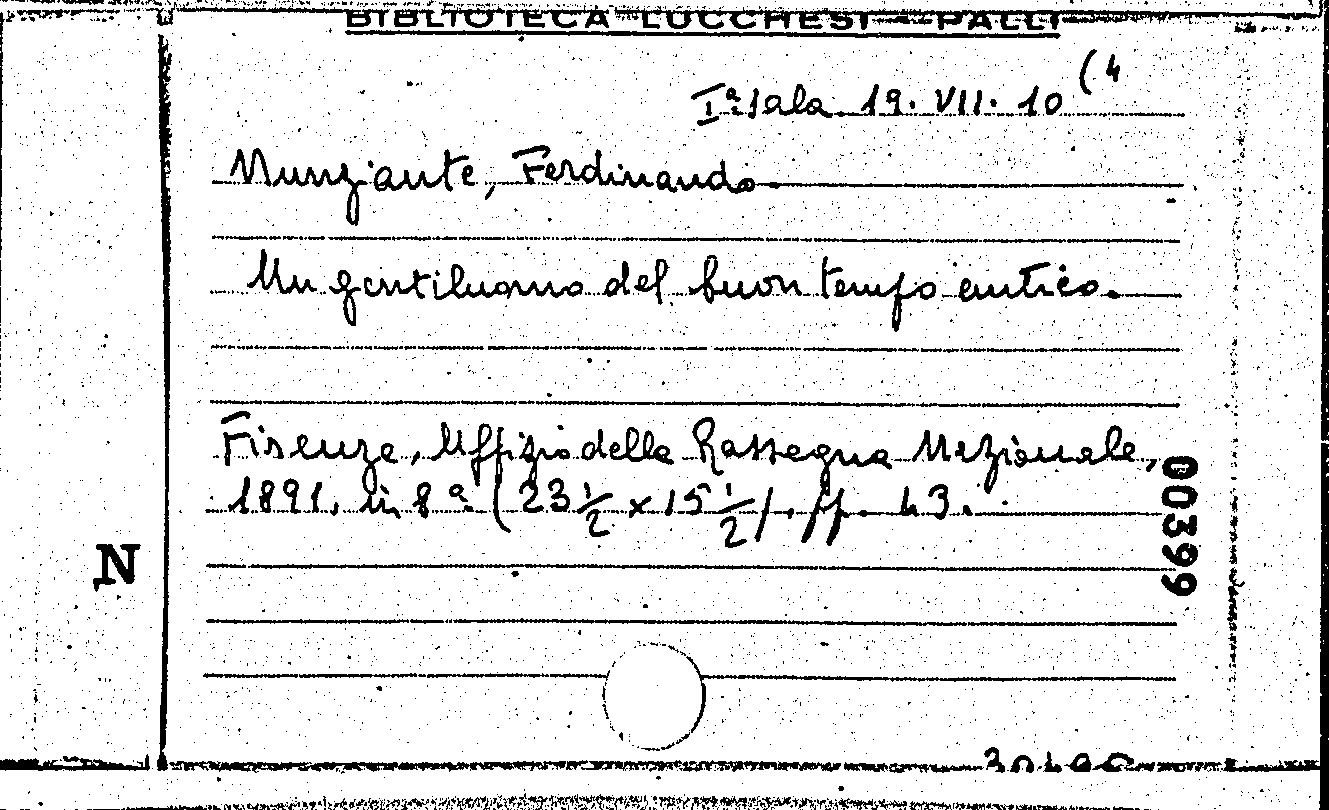 BIBLIOTECA LUCCHESI - PALLI
Iª Sala. 19. VII. 10 (4
Nunziante, Ferdinando.
Un gentiluomo del buon tempo antico.
Firenze, Uffizio della Rassegna Nazionale,
1891, in 8º. (23 1/2 x 15 1/2), pp. 43.
00399
N